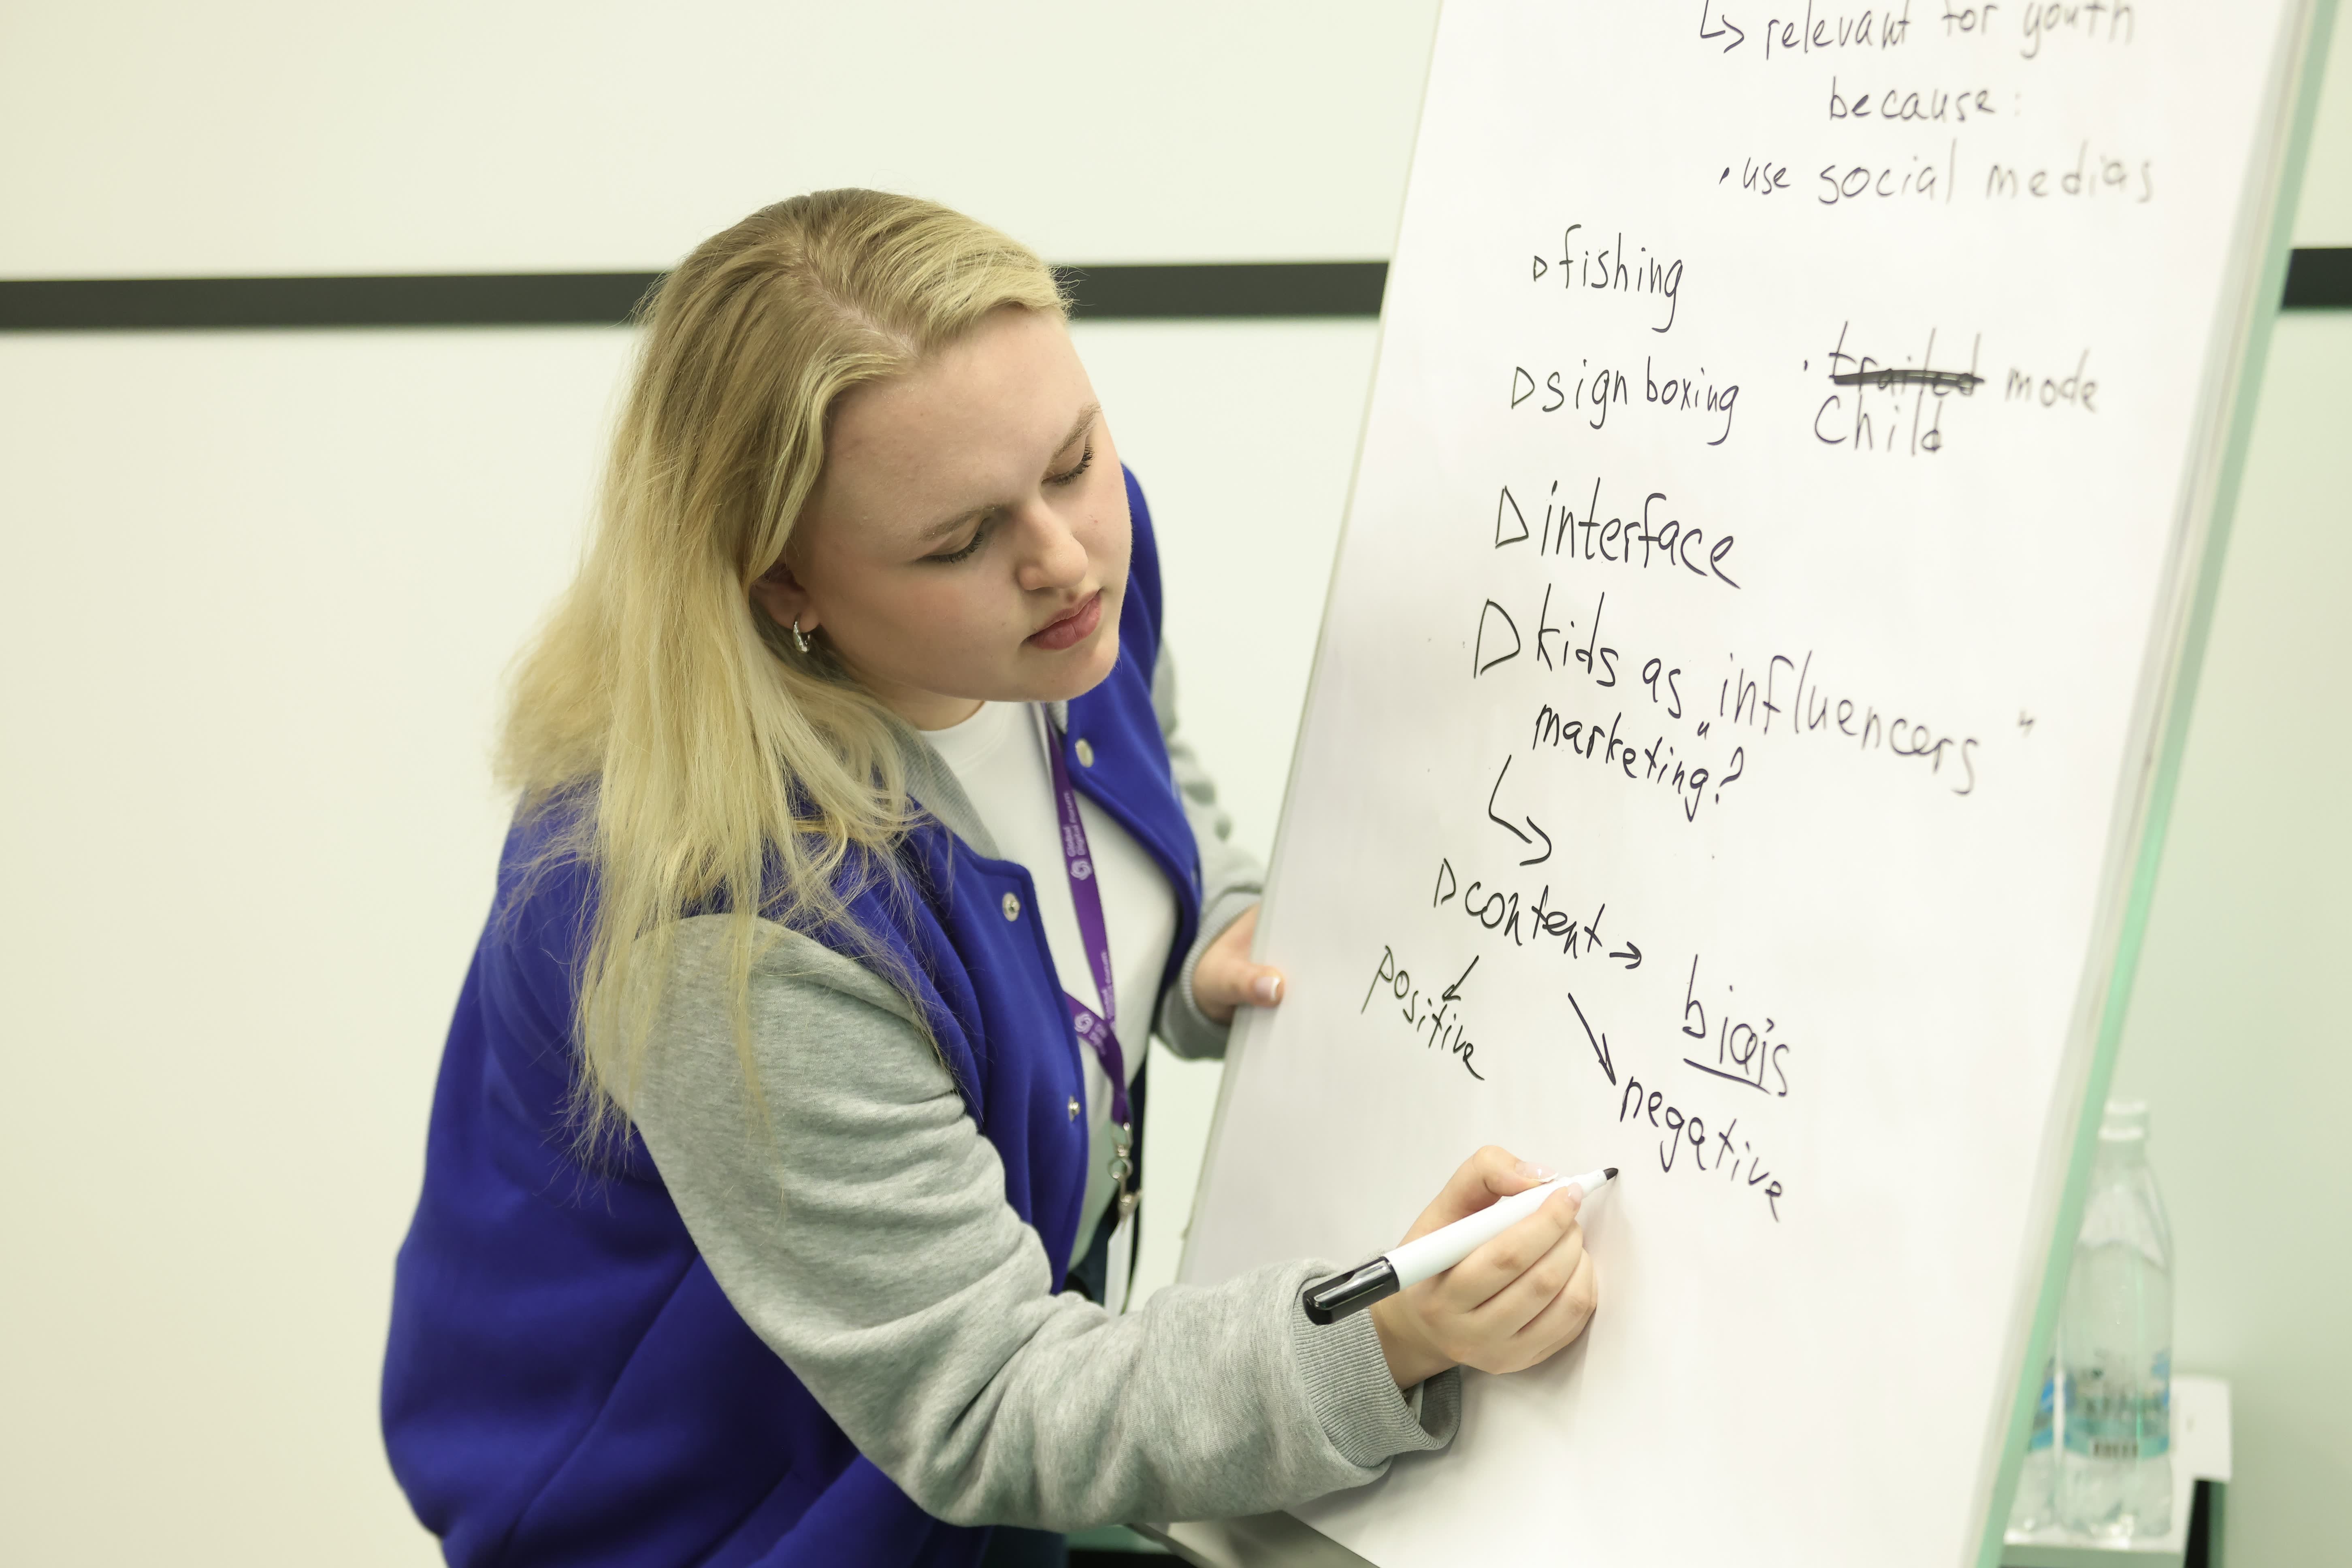 ↳ relevant for youth
because:
• use social medias
▷ fishing
▷ sign boxing • trailed mode
Child
▷ interface
▷ kids as „influencers"
marketing?
▷ content →
positive
biais
negative
Global
Digital Forum